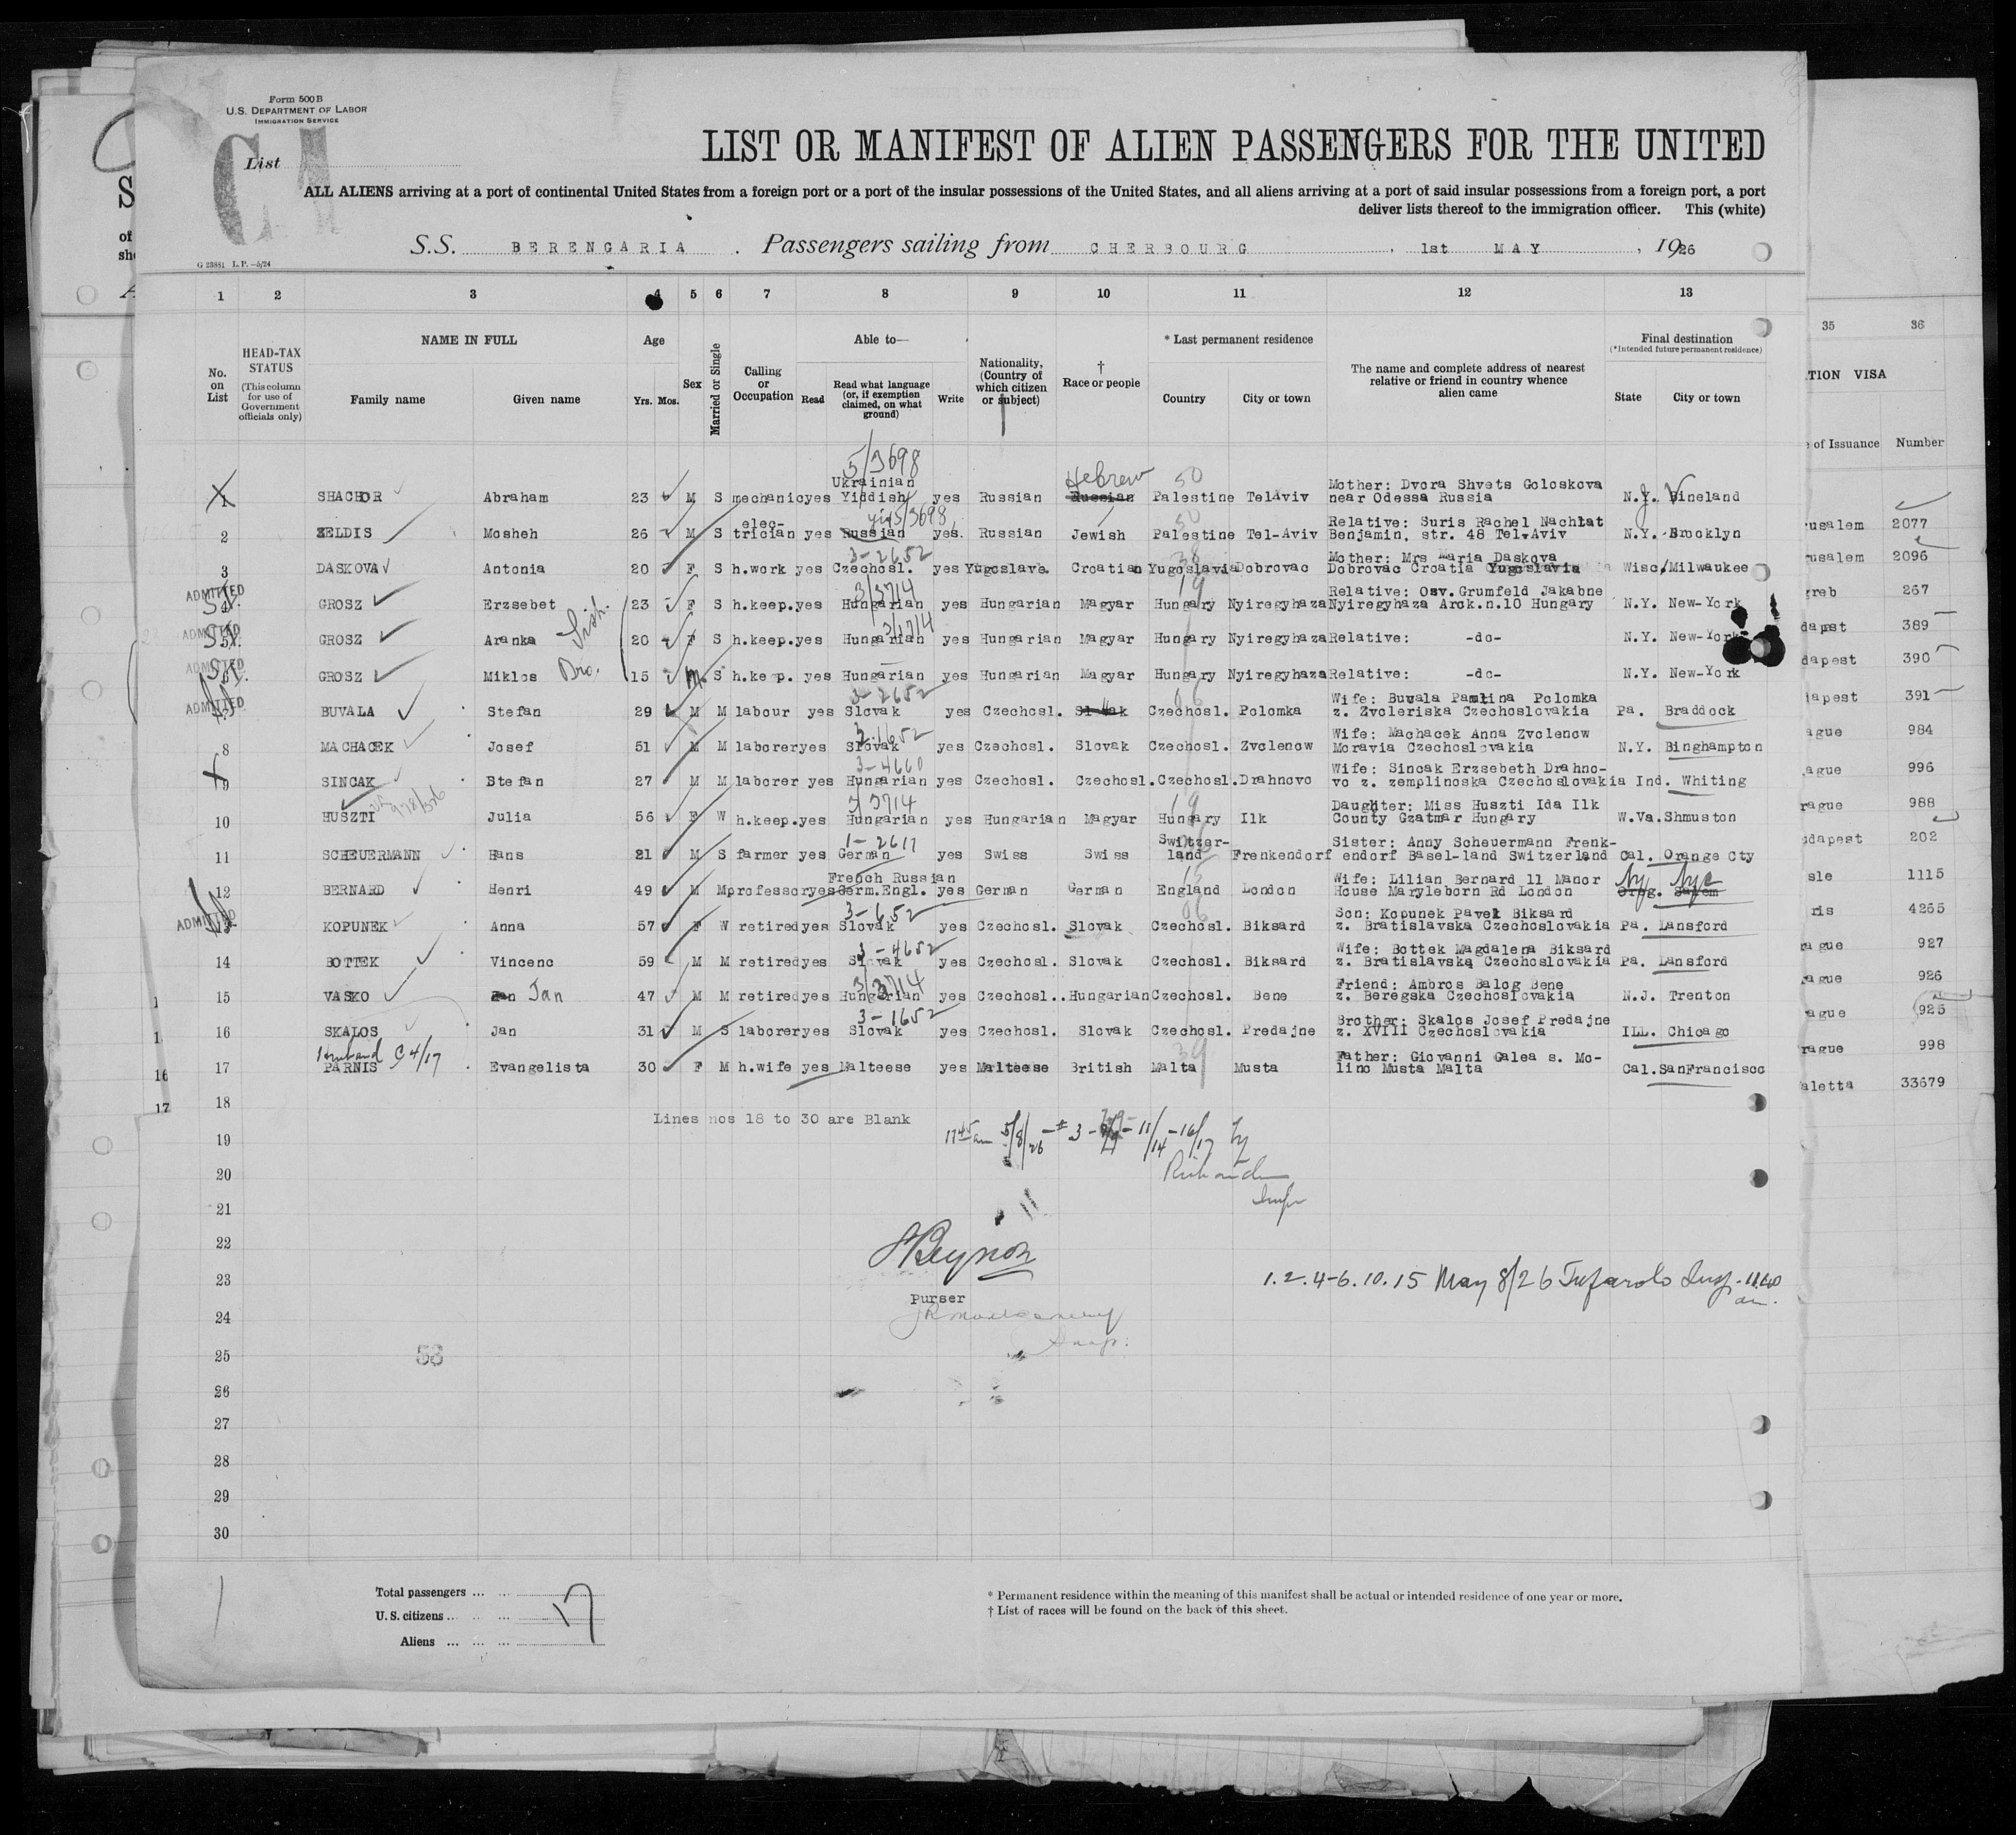 Form 500 B
U.S. DEPARTMENT OF LABOR
IMMIGRATION SERVICE
List
LIST OR MANIFEST OF ALIEN PASSENGERS FOR THE UNITED
ALL ALIENS arriving at a port of continental United States from a foreign port or a port of the insular possessions of the United States, and all aliens arriving at a port of said insular possessions from a foreign port, a port
deliver lists thereof to the immigration officer. This (white)
S.S. BERENGARIA . Passengers sailing from CHERBOURG , 1st MAY , 1926
G 23881 L.P.—5/24
1 2 3 4 5 6 7 8 9 10 11 12 13
35 36
No. on List
HEAD-TAX STATUS
(This column for use of Government officials only)
NAME IN FULL
Family name Given name
Age
Yrs. Mos.
Sex
Married or Single
Calling or Occupation
Able to—
Read Read what language (or, if exemption claimed, on what ground) Write
Nationality, (Country of which citizen or subject)
† Race or people
* Last permanent residence
Country City or town
The name and complete address of nearest relative or friend in country whence alien came
Final destination
(*Intended future permanent residence)
State City or town
TION VISA
e of Issuance Number
5/3698
Ukrainian Hebrew 50 Mother: Dvora Shvets Goloskova
1 SHACHOR Abraham 23 M S mechanic yes Yiddish yes Russian Russian Palestine TelAviv near Odessa Russia N.Y. J. Vineland
elec- Relative: Suris Rachel Nachtat
2 ZELDIS Mosheh 26 M S trician yes Russian yes. Russian Jewish Palestine Tel-Aviv Benjamin, str. 48 Tel.Aviv N.Y. Brooklyn
usalem 2077
3-2652 Mother: Mrs Maria Daskova
3 DASKOVA Antonia 20 F S h.work yes Czechosl. yes Yugoslave. Croatian Yugoslavia Dobrovac Dobrovac Croatia Yugoslavia Wisc. Milwaukee
usalem 2096
ADMITTED 3/3714 19 Relative: Osv.Grumfeld Jakabne
4 GROSZ Erzsebet 23 F S h.keep. yes Hungarian yes Hungarian Magyar Hungary Nyiregyhaza Nyiregyhaza Arok.n.10 Hungary N.Y. New-York
greb 267
ADMITTED Sist. 3/3714
5 GROSZ Aranka 20 F S h.keep. yes Hungarian yes Hungarian Magyar Hungary Nyiregyhaza Relative: -do- N.Y. New-York
dapest 389
ADMITTED Bro.
GROSZ Miklos 15 M. S h.keep. yes Hungarian yes Hungarian Magyar Hungary Nyiregyhaza Relative: -do- N.Y. New-York
dapest 390
ADMITTED 3-2652 06 Wife: Buvala Pamlina Polomka
BUVALA Stefan 29 M M labour yes Slovak yes Czechosl. Slovak Czechosl. Polomka z. Zvoleriska Czechoslovakia Pa. Braddock
dapest 391
3-1652 Wife: Machacek Anna Zvclenow
8 MACHACEK Josef 51 M M laborer yes Slovak yes Czechosl. Slovak Czechosl. Zvclenow Moravia Czechoslovakia N.Y. Binghampton
ague 984
3-4660 Wife: Sincak Erzsebeth Drahno-
9 SINCAK Stefan 27 M M laborer yes Hungarian yes Czechosl. Czechosl. Czechosl. Drahnovo vo z. zemplinoska Czechoslovakia Ind. Whiting
ague 996
3/3714 19 Daughter: Miss Huszti Ida Ilk
10 HUSZTI Julia 56 F W h.keep. yes Hungarian yes Hungarian Magyar Hungary Ilk County Gzatmar Hungary W.Va. Shmuston
rague 988
1-2617 Switzer- Sister: Anny Scheuermann Frenk-
11 SCHEUERMANN Hans 21 M S farmer yes German yes Swiss Swiss land Frenkendorf endorf Basel-land Switzerland Cal. Orange Cty
udapest 202
French Russian 15 Wife: Lilian Bernard 11 Manor
12 BERNARD Henri 49 M M professor yes Germ.Engl. yes German German England London House Maryleborn Rd London Ny Nyc Oreg. Salem
sle 1115
ADMITTED 3-652 06 Son: Kopunek Pavel Biksard
13 KOPUNEK Anna 57 F W retired yes Slovak yes Czechosl. Slovak Czechosl. Biksard z. Bratislavska Czechoslovakia Pa. Lansford
ris 4265
3-4652 Wife: Bottek Magdalena Biksard
14 BOTTEK Vincenc 59 M M retired yes Slovak yes Czechosl. Slovak Czechosl. Biksard z. Bratislavska Czechoslovakia Pa. Lansford
rague 927
3/3714 Friend: Ambros Balog Bene
15 VASKO Jan Jan 47 M M retired yes Hungarian yes Czechosl.. Hungarian Czechosl. Bene z. Beregska Czechoslovakia N.J. Trenton
ague 926
3-1652 Brother: Skalos Josef Predajne
16 SKALOS Jan 31 M S laborer yes Slovak yes Czechosl. Slovak Czechosl. Predajne z. XVIII Czechoslovakia ILL. Chicago
ague 925
Husband C 4/17 39 Father: Giovanni Galea s. Mo-
17 PARNIS Evangelista 30 F M h.wife yes Malteese yes Malteese British Malta Musta lino Musta Malta Cal. SanFrancisco
rague 998
aletta 33679
18
Lines nos 18 to 30 are Blank
19
20
21
22
23
Purser
1.2.4-6.10.15 May 8/26 Tufarolo Insp. 11.40 am.
24
25
53
26
27
28
29
30
Total passengers ... ...
U.S. citizens ... ... ... 17
Aliens ... ... ...
* Permanent residence within the meaning of this manifest shall be actual or intended residence of one year or more.
† List of races will be found on the back of this sheet.